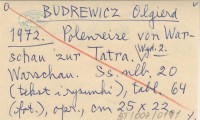 BUDREWICZ Olgierd
1972. Polenreise von War-
schau zur Tatra. Wyd. 2.
Warszau. Ss. nlb. 20
(tekst i rysunki), tabl. 64
(fot.), opr., cm 25 x 22